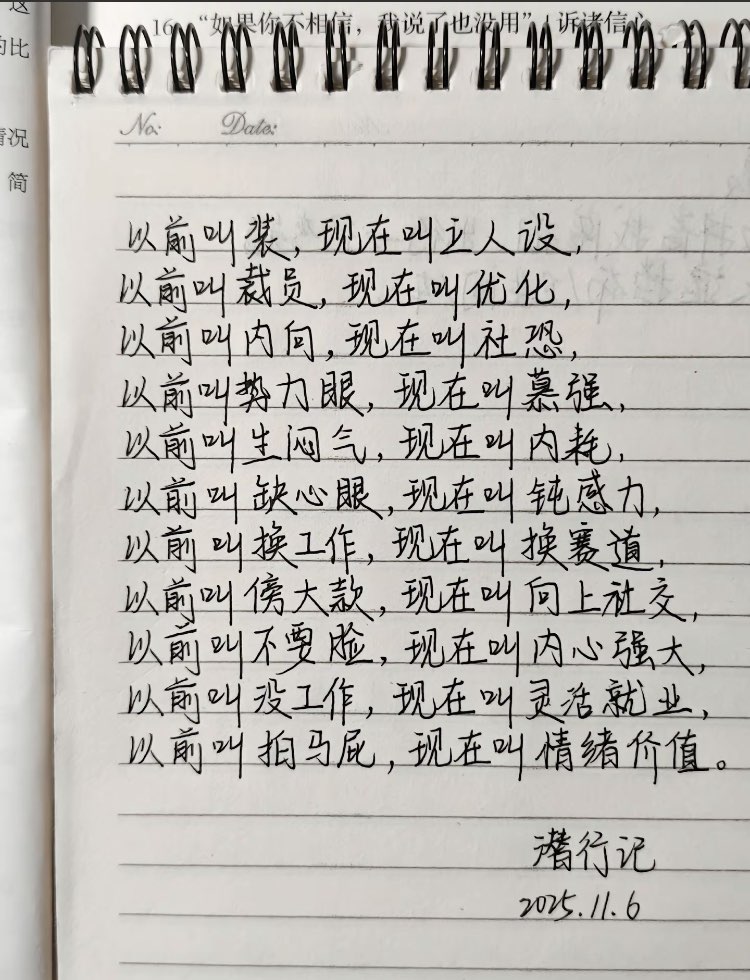 这
的比
情况
简
16 “如果你不相信，我说了也没用” | 诉诸信心
No:
Date:
以前叫装，现在叫立人设，
以前叫裁员，现在叫优化，
以前叫内向，现在叫社恐，
以前叫势力眼，现在叫慕强，
以前叫生闷气，现在叫内耗，
以前叫缺心眼，现在叫钝感力，
以前叫换工作，现在叫换赛道，
以前叫傍大款，现在叫向上社交，
以前叫不要脸，现在叫内心强大，
以前叫没工作，现在叫灵活就业，
以前叫拍马屁，现在叫情绪价值。
潜行记
2025.11.6